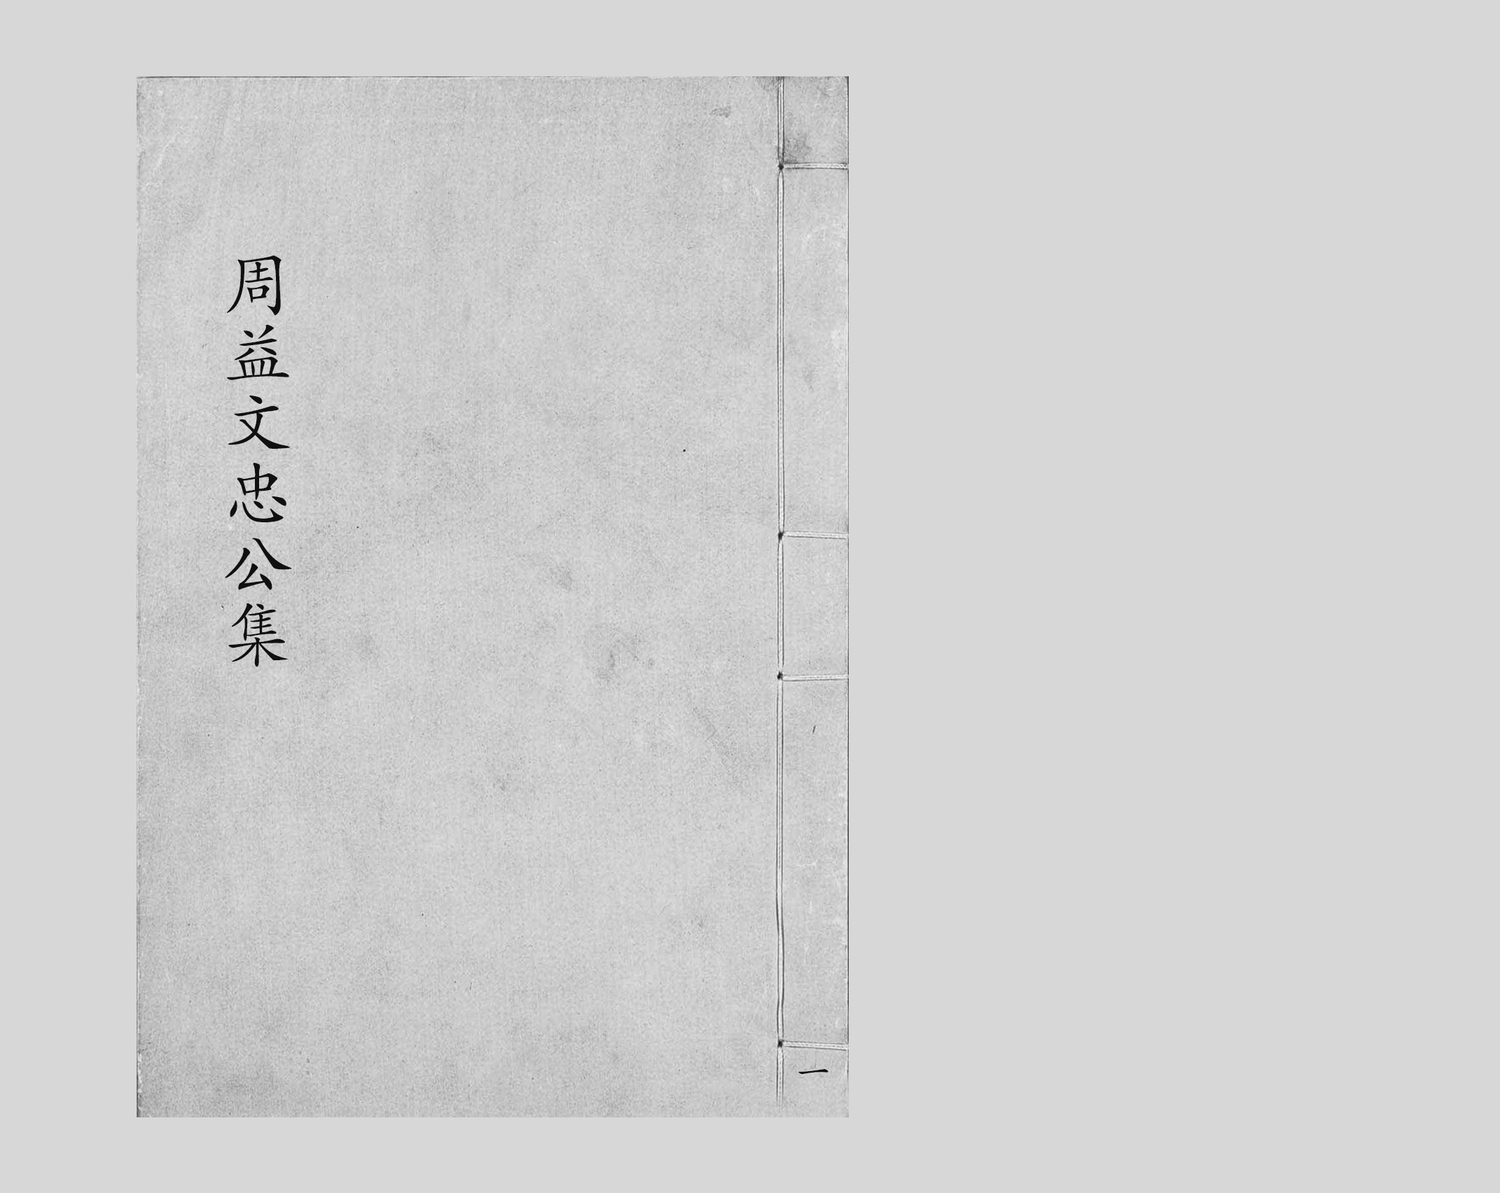 周益文忠公集
一